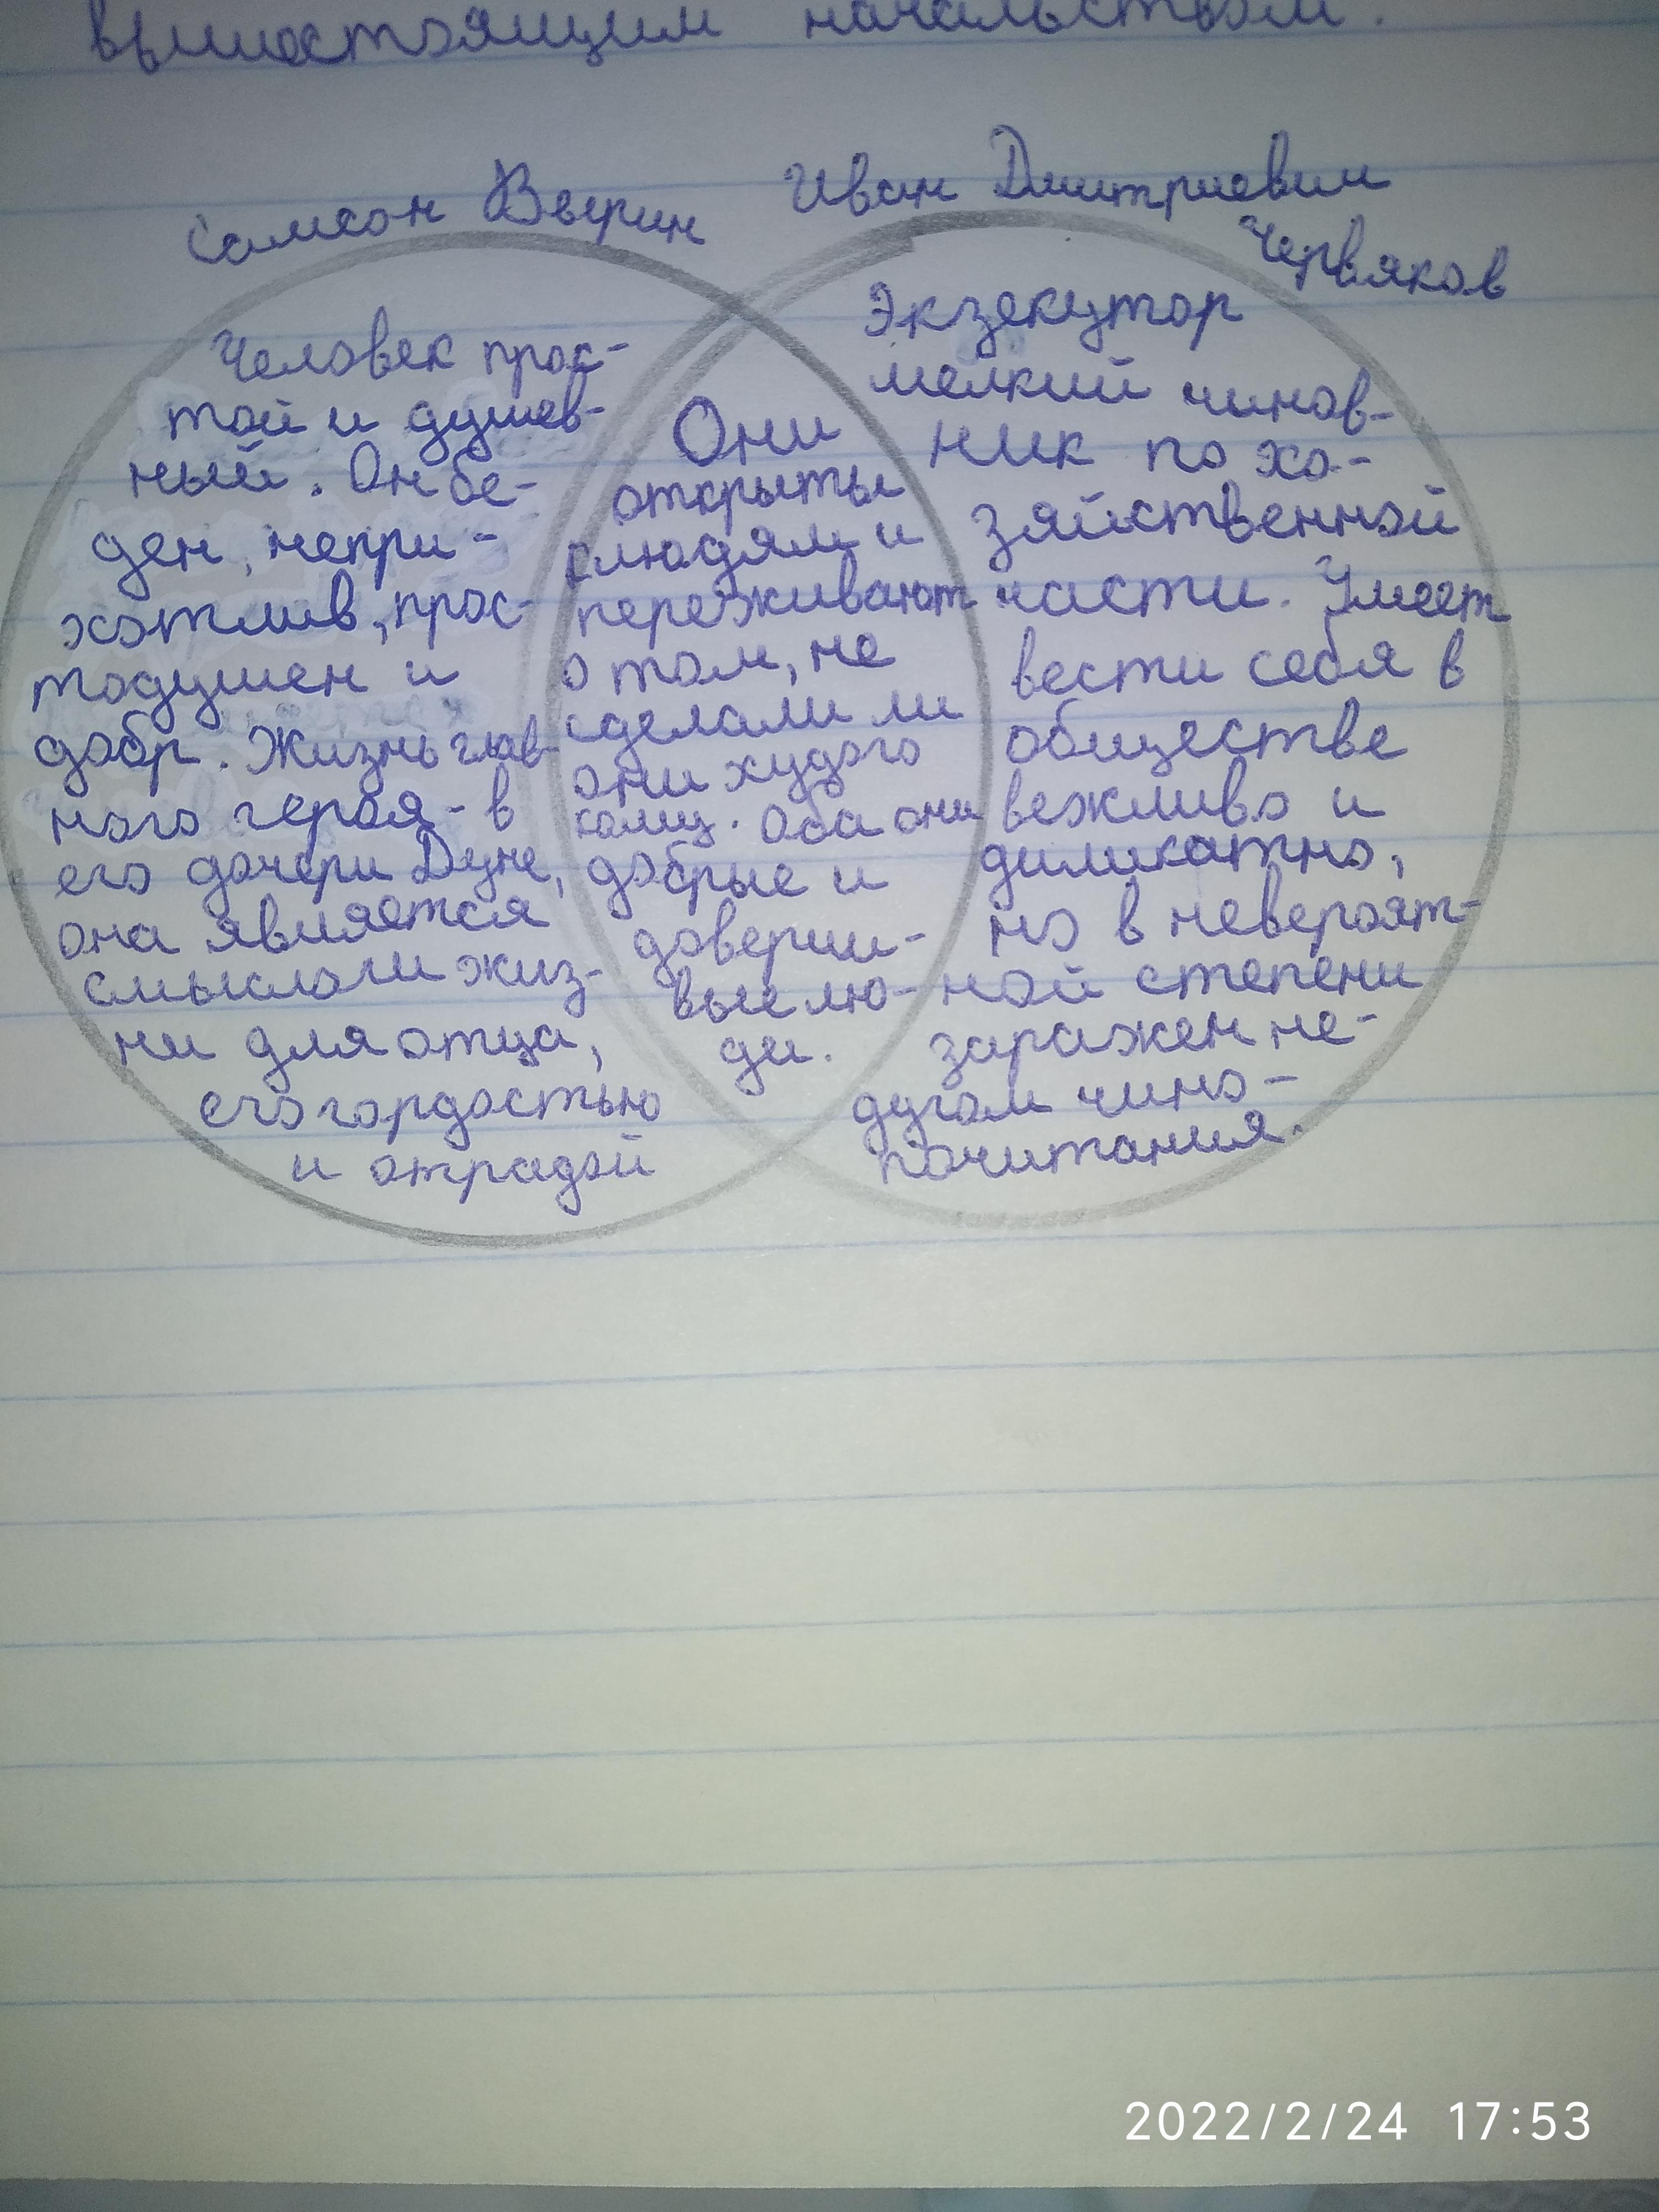 вышестоящим начальством.
Самсон Вверин
Иван Дмитриевич
Червяков
Человек прос-
той и душев-
ный. Он бе-
ден, непри-
хотлив, прос-
тодушен и
добр. Жизнь глав-
ного героя - в
его дочери Дуне,
она является
смыслом жиз-
ни для отца,
его гордостью
и отрадой
Они
открыты
к людям и
переживают
о том, не
сделали ли
они худого
кому. Оба они
добрые и
доверчи-
вые лю-
ди.
Экзекутор
мелкий чинов-
ник по хо-
зяйственной
части. Умеет
вести себя в
обществе
вежливо и
диликатно,
но в невероят-
ной степени
заражен не-
дугом чино-
почитания.
2022/2/24 17:53